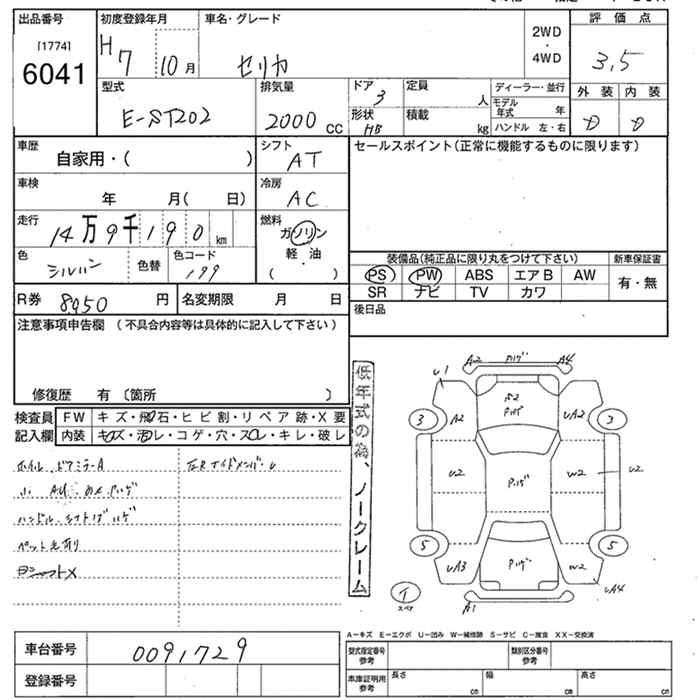 出品番号 初度登録年月 車名・グレード 2WD・4WD 評価点
[1774] 6041 H7 10月 セリカ 3,5
型式 排気量 ドア 3 定員 人 ディーラー・並行 外装 内装
E-ST202 2000 CC 形状 HB 積載 kg モデル年式 年 ハンドル 左・右 D D
車歴 自家用・( ) シフト AT セールスポイント(正常に機能するものに限ります)
車検 年 月( 日) 冷房 AC
走行 14万9千190km 燃料 ガソリン
軽・油
色 シルバン 色替 色コード 199 ( )
装備品(純正品に限り丸をつけて下さい) 新車保証書
PS PW ABS エアB AW 有・無
SR ナビ TV カワ
R券 8950円 名変期限 月 日 後日品
注意事項申告欄 (不具合内容等は具体的に記入して下さい)
修復歴 有 〔箇所 〕
低年式の為、ノークレーム
検査員記入欄 FW キズ・飛石・ヒビ割・リペア跡・X要
内装 キズ・汚レ・コゲ・穴・スレ・キレ・破レ
ホイル、ドアミラーA
ハンドル・シフトノブハゲ
ペット毛有り
U1 A2 ハゲ A4
3 A2 ハゲ UA2 3
U2 ハゲ W2 U2
5 UA3 ハゲ W2 5
UA4
T スペア A1
A-キズ E-エクボ U-凹み W-補修跡 S-サビ C-腐食 XX-交換済
車台番号 0091729
登録番号
型式指定番号 参考 類別区分番号 参考
車庫証明用 参考 長さ cm 幅 cm 高さ cm